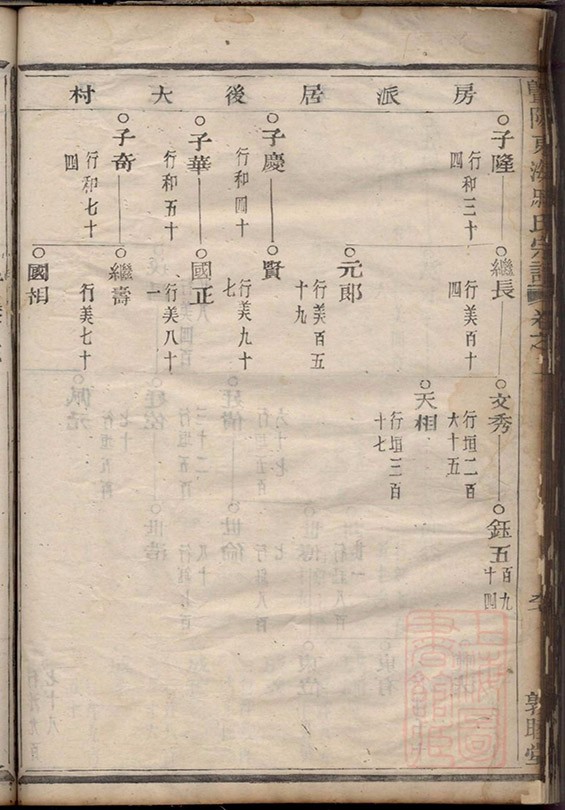 房派居後大村
子隆
行和三十
四
繼長
行美百十
四
文秀
行垣二百
六十五
鈺五百九
十四
天相
行垣三百
十七
元郎
行美百五
十九
子慶
行和四十
賢
行美九十
七
子華
行和五十
國正
行美八十
一
子奇
行和七十
四
繼壽
行美七十
國相
敦睦堂